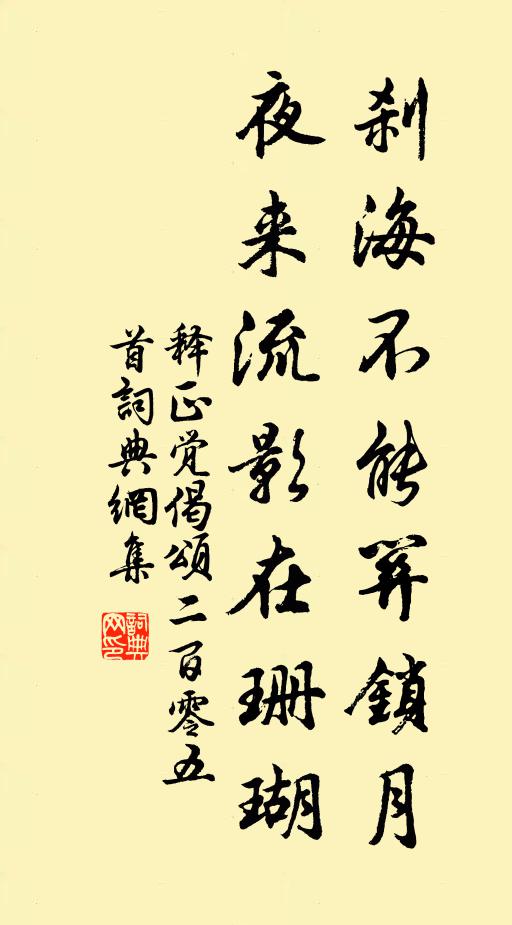 刹海不能关鎖月
夜来流影在珊瑚
释正觉偈頌二百零五
首詞典網集
詞典网印